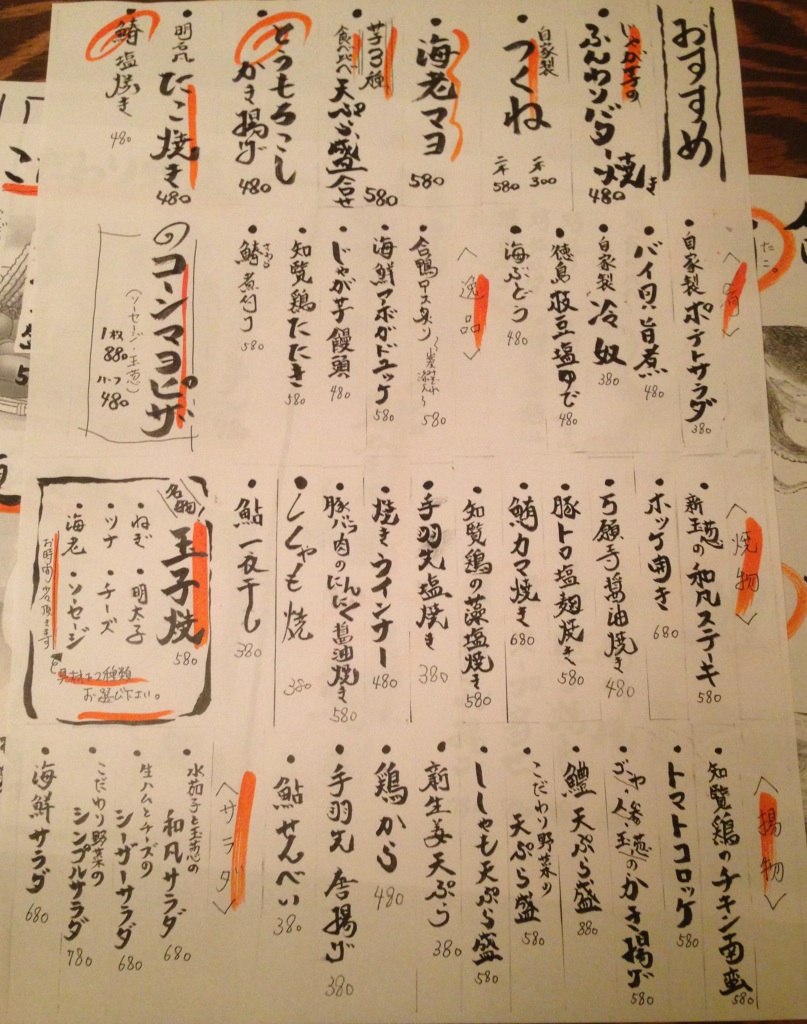 おすすめ
じゃが芋の
ふんわりバター焼き
480
自家製
つくね
一本 300
二本 580
海老マヨ
580
芋3種
食べ比べ天ぷら盛合せ
580
とうもろこし
かき揚げ
480
明石風たこ焼き
480
鰆塩焼き
480
自家製ポテトサラダ
380
バイ貝旨煮
480
自家製冷奴
380
徳島 枝豆塩ゆで
480
海ぶどう
480
〈逸品〉
合鴨ロース炙り
580
海鮮アボカドユッケ
580
じゃが芋饅頭
480
知覧鶏たたき
580
鰆煮付け
580
コーンマヨピザ
(ソーセージ・玉葱)
1枚 880
ハーフ 480
〈焼物〉
新玉葱の和風ステーキ
580
ホッケ開き
680
万願寺醤油焼き
480
豚トロ塩麹焼き
580
鮪カマ焼き
680
知覧鶏の藻塩焼き
580
手羽先塩焼き
380
焼きウインナー
480
豚バラ肉のにんにく醤油焼き
580
ししゃも焼
380
鮎一夜干し
380
名物
玉子焼
580
・ねぎ ・明太子
・ツナ ・チーズ
・海老 ・ソーセージ
お時間少々頂きます
具材を2種類
お選び下さい。
〈揚物〉
知覧鶏のチキン南蛮
580
トマトコロッケ
580
ゴーヤ・人参・玉葱のかき揚げ
580
鱧天ぷら盛
880
こだわり野菜の
天ぷら盛
580
ししゃも天ぷら盛
580
新生姜天ぷら
380
鶏から
480
手羽先唐揚げ
380
鮎せんべい
380
〈サラダ〉
水茄子と玉葱の
和風サラダ
680
生ハムとチーズの
シーザーサラダ
680
こだわり野菜の
シンプルサラダ
780
海鮮サラダ
680